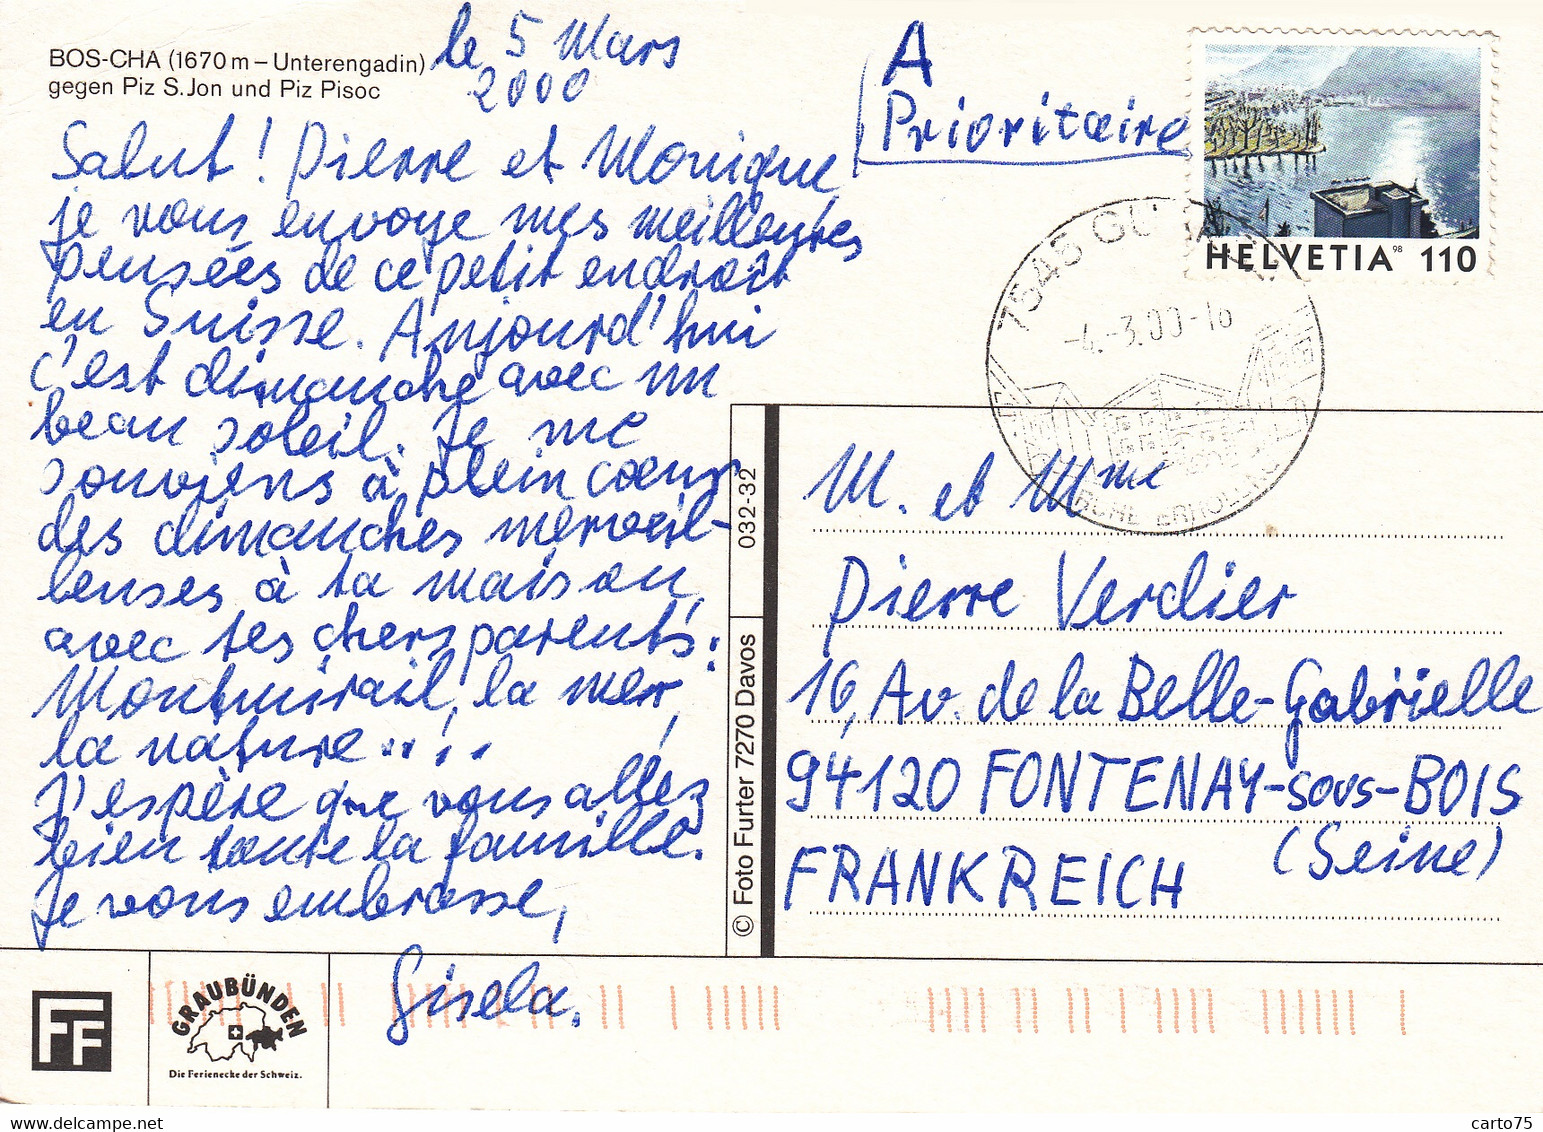 BOS-CHA (1670 m – Unterengadin)
gegen Piz S. Jon und Piz Pisoc
le 5 Mars
2000
A
Prioritaire
HELVETIA 98 110
7545 GUARDA
-4.-3.00-16
Salut! Pierre et Monique,
je vous envoye mes meilleures
pensées de ce petit endroit
en Suisse. Aujourd'hui
c'est dimanche avec un
beau soleil. Je me
souviens à plein coeur
des dimanches merveil-
leuses à ta maison,
avec tes chers parents:
Montmirail, la mer,
la nature....
J'espère que vous allez
bien toute la famille.
Je vous embrasse,
Gisela.
M. et Mme
Pierre Verdier
16, Av. de la Belle-Gabrielle
94120 FONTENAY-sous-BOIS
(Seine)
FRANKREICH
032-32
© Foto Furter 7270 Davos
FF
GRAUBÜNDEN
Die Ferienecke der Schweiz.
carto75